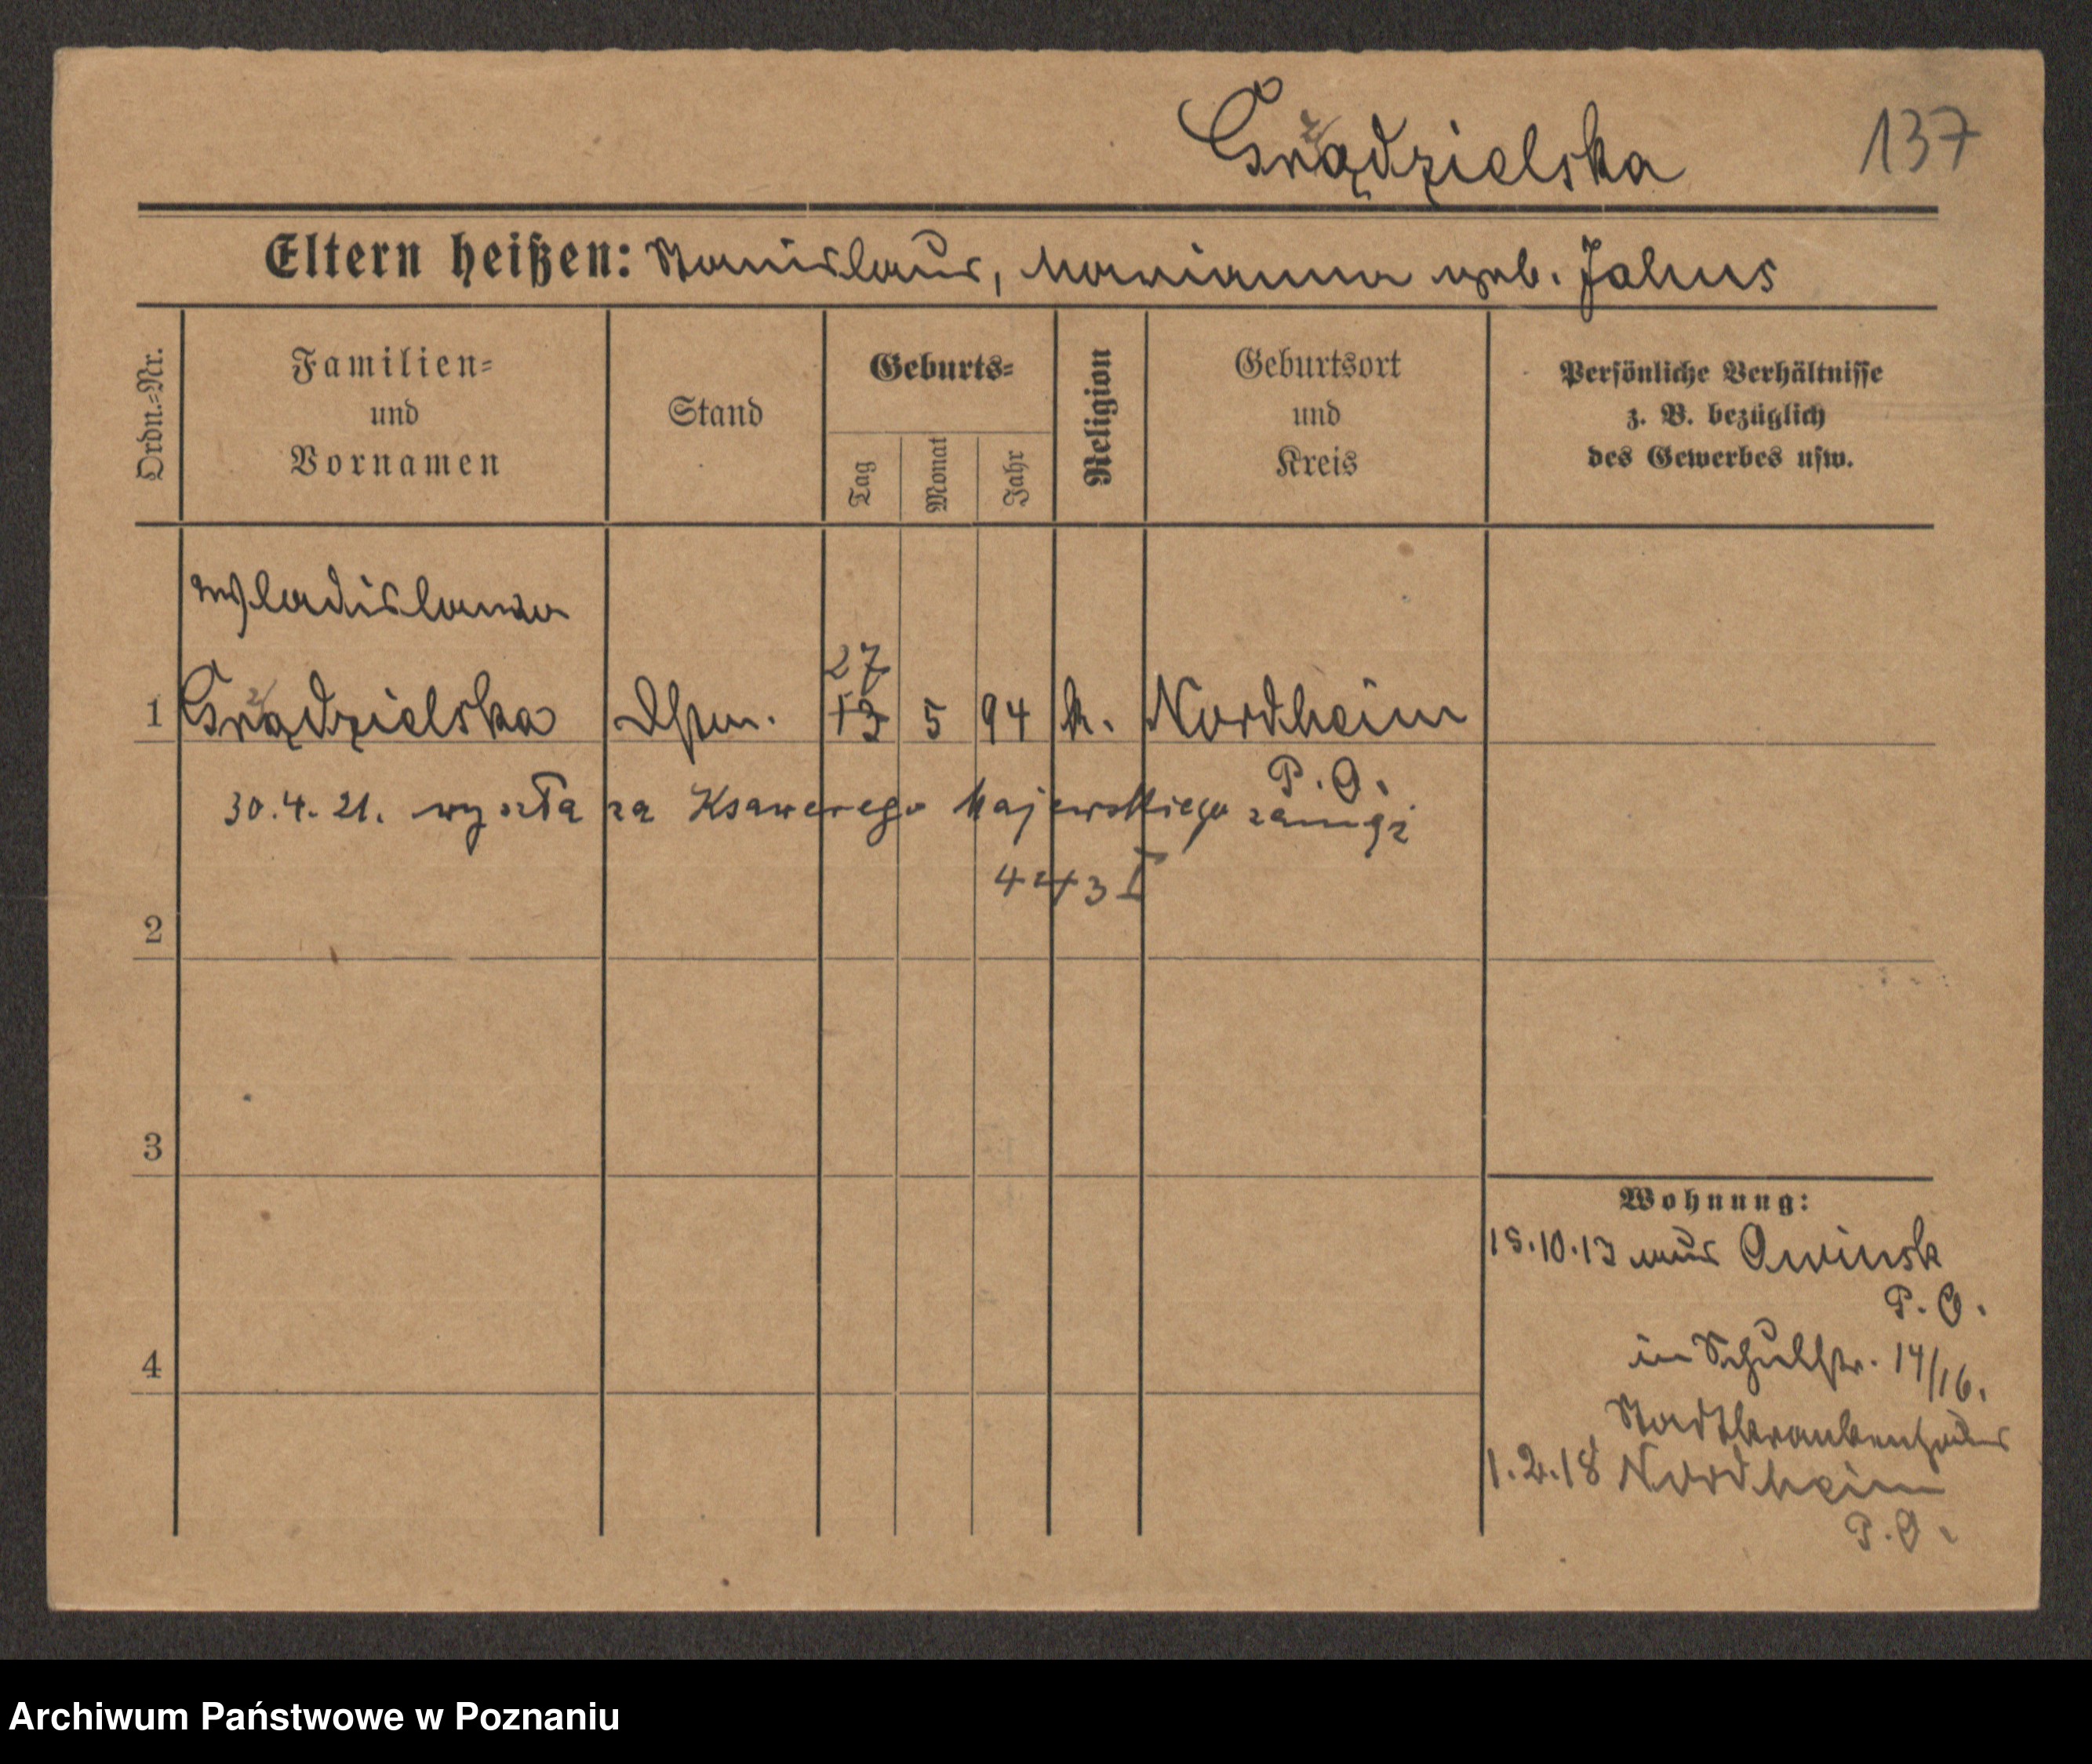 Grądzielska 137
Eltern heißen: Stanislaus, Marianna geb. Jahns
Ordn.-Nr.
Familien-
und
Vornamen
Stand
Geburts-
Tag
Monat
Jahr
Religion
Geburtsort
und
Kreis
Persönliche Verhältnisse
z. B. bezüglich
des Gewerbes usw.
Wladislawa
27
1 Grądzielska 13 5 94 k. Nordheim
P. O.
30.4.21. wyszła za Ksawerego Majewskiego zamąż
4473 I
2
3
4
Wohnung:
15.10.13 aus Owinsk
P. O.
in Schulstr. 14/16.
Stadtkrankenhaus
1.2.18 Nordheim
P. O.
Archiwum Państwowe w Poznaniu